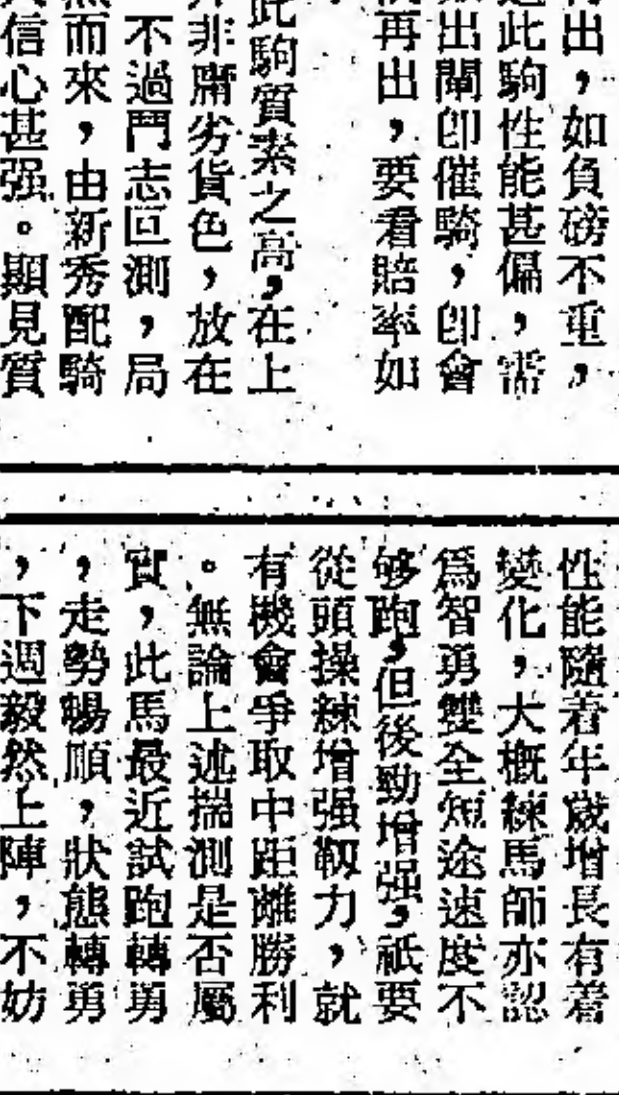 出，如負磅不重，
此駒性能甚偏，需
出閘卽催騎，卽會
再出，要看賠率如
此駒質素之高，在上
非庸劣貨色，放在
不過鬥志叵測，局
而來，由新秀配騎
信心甚强。顯見質
性能隨着年歲增長有着
變化，大槪練馬師亦認
爲智勇雙全短途速度不
够跑，但後勁增强，祇要
從頭操練增强靱力，就
有機會爭取中距離勝利
。無論上述揣測是否屬
實，此馬最近試跑轉勇
，走勢暢順，狀態轉勇
，下週毅然上陣，不妨